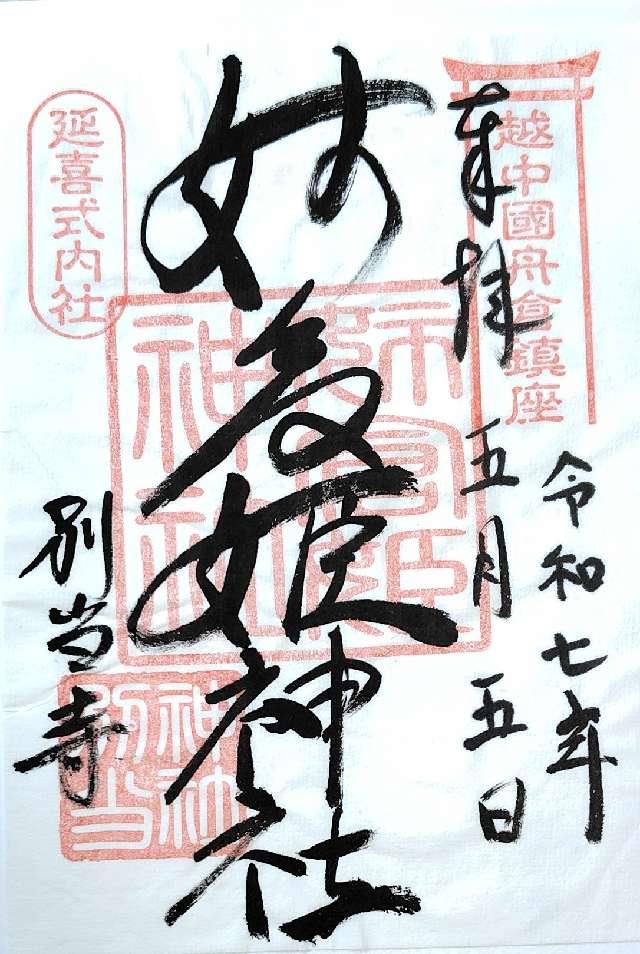 奉拝
越中國舟倉鎮座
令和七年
五月五日
姉倉姫神社
延喜式内社
別当寺